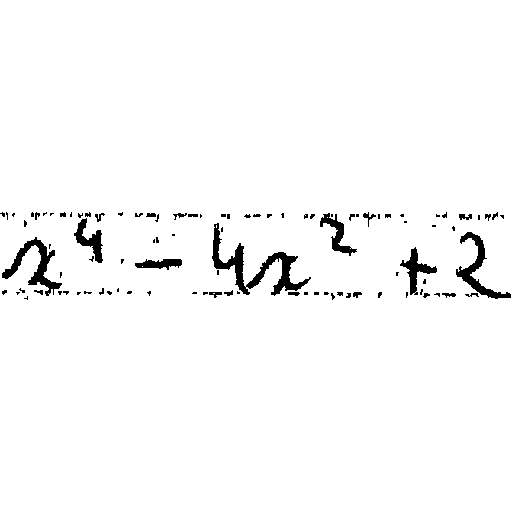 x⁴ - 4x² + 2